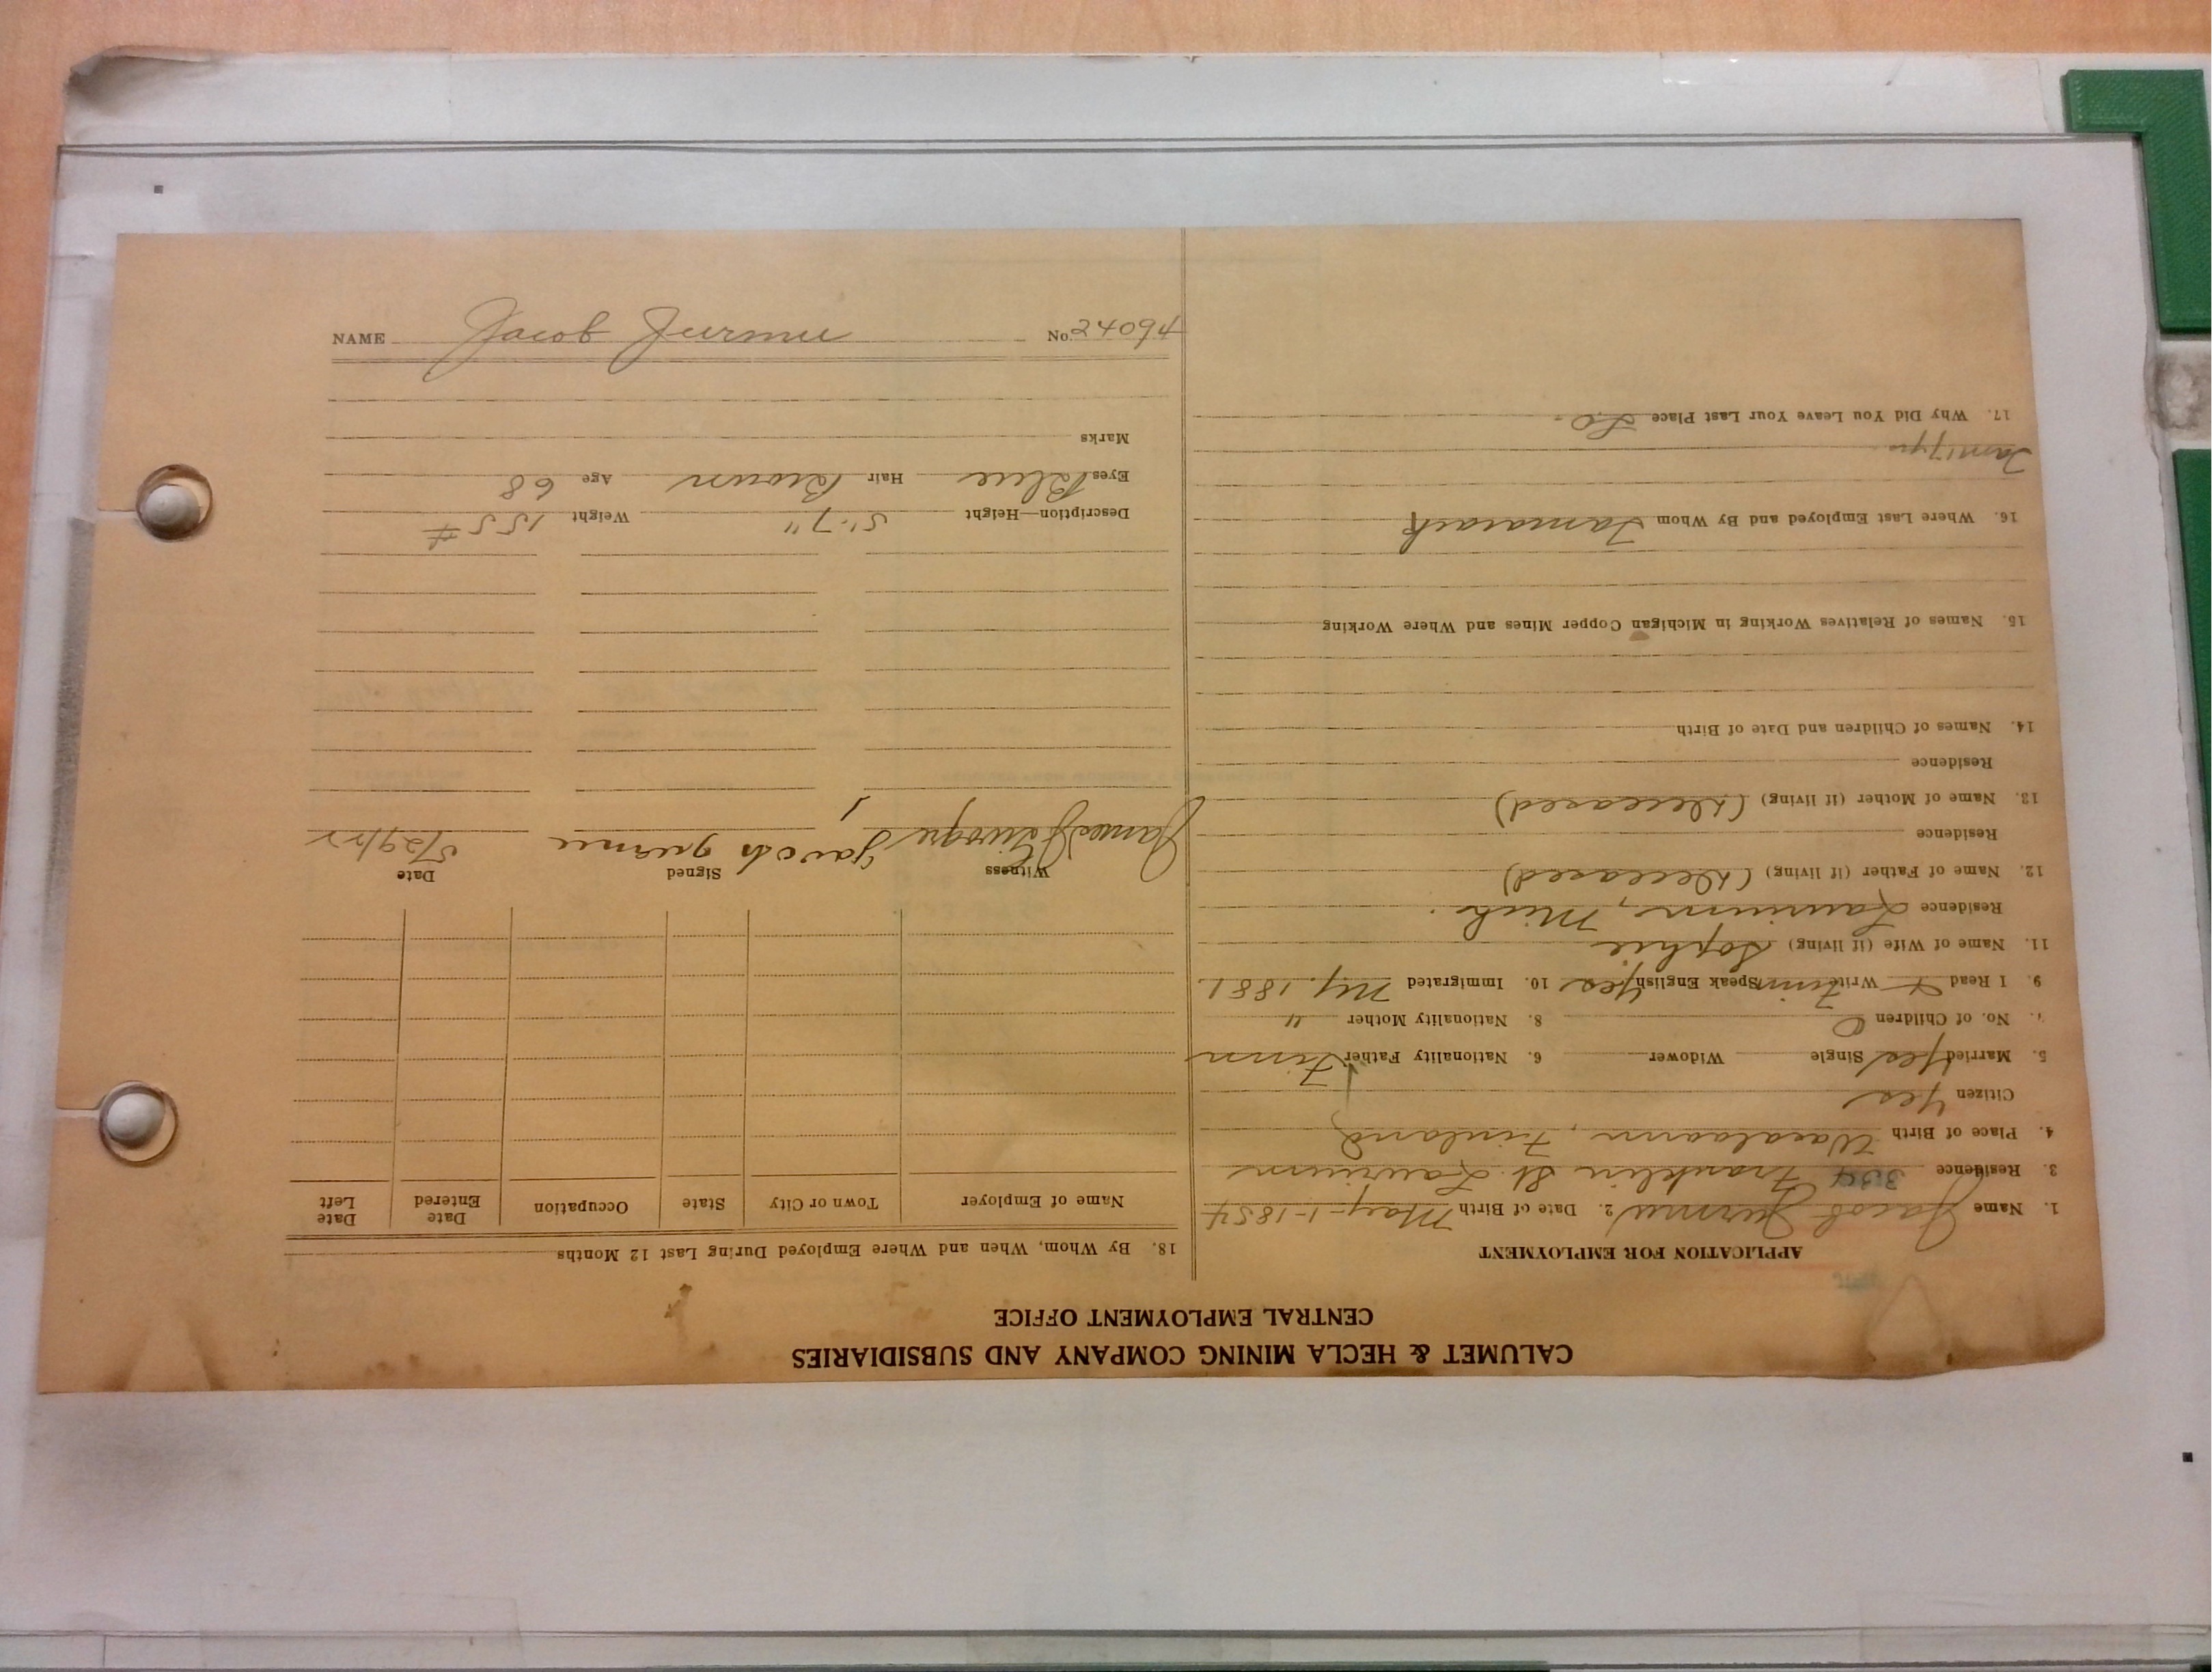 CALUMET & HECLA MINING COMPANY AND SUBSIDIARIES
CENTRAL EMPLOYMENT OFFICE
APPLICATION FOR EMPLOYMENT
1. Name Jacob Jurmu 2. Date of Birth May-1-1854
3. Residence 334 Franklin St. Laurium
4. Place of Birth Finland
Citizen Yes
5. Married Yes Single Widower 6. Nationality Father Finn
7. No. of Children 0 8. Nationality Mother "
9. I Read & Write Finn Speak English Yes 10. Immigrated My. 1881.
11. Name of Wife (if living) Sophie
Residence Laurium, Mich.
12. Name of Father (if living) (Deceased)
Residence
13. Name of Mother (if living) (Deceased)
Residence
14. Names of Children and Date of Birth
15. Names of Relatives Working in Michigan Copper Mines and Where Working
16. Where Last Employed and By Whom Tamarack
17. Why Did You Leave Your Last Place
18. By Whom, When and Where Employed During Last 12 Months
Name of Employer Town or City State Occupation Date Entered Date Left
Witness Signed Date
James Jacob Jurmu 5/29/22
Description—Height 5'-7" Weight 155#
Eyes Blue Hair Brown Age 68
Marks
NAME Jacob Jurmu No. 24094